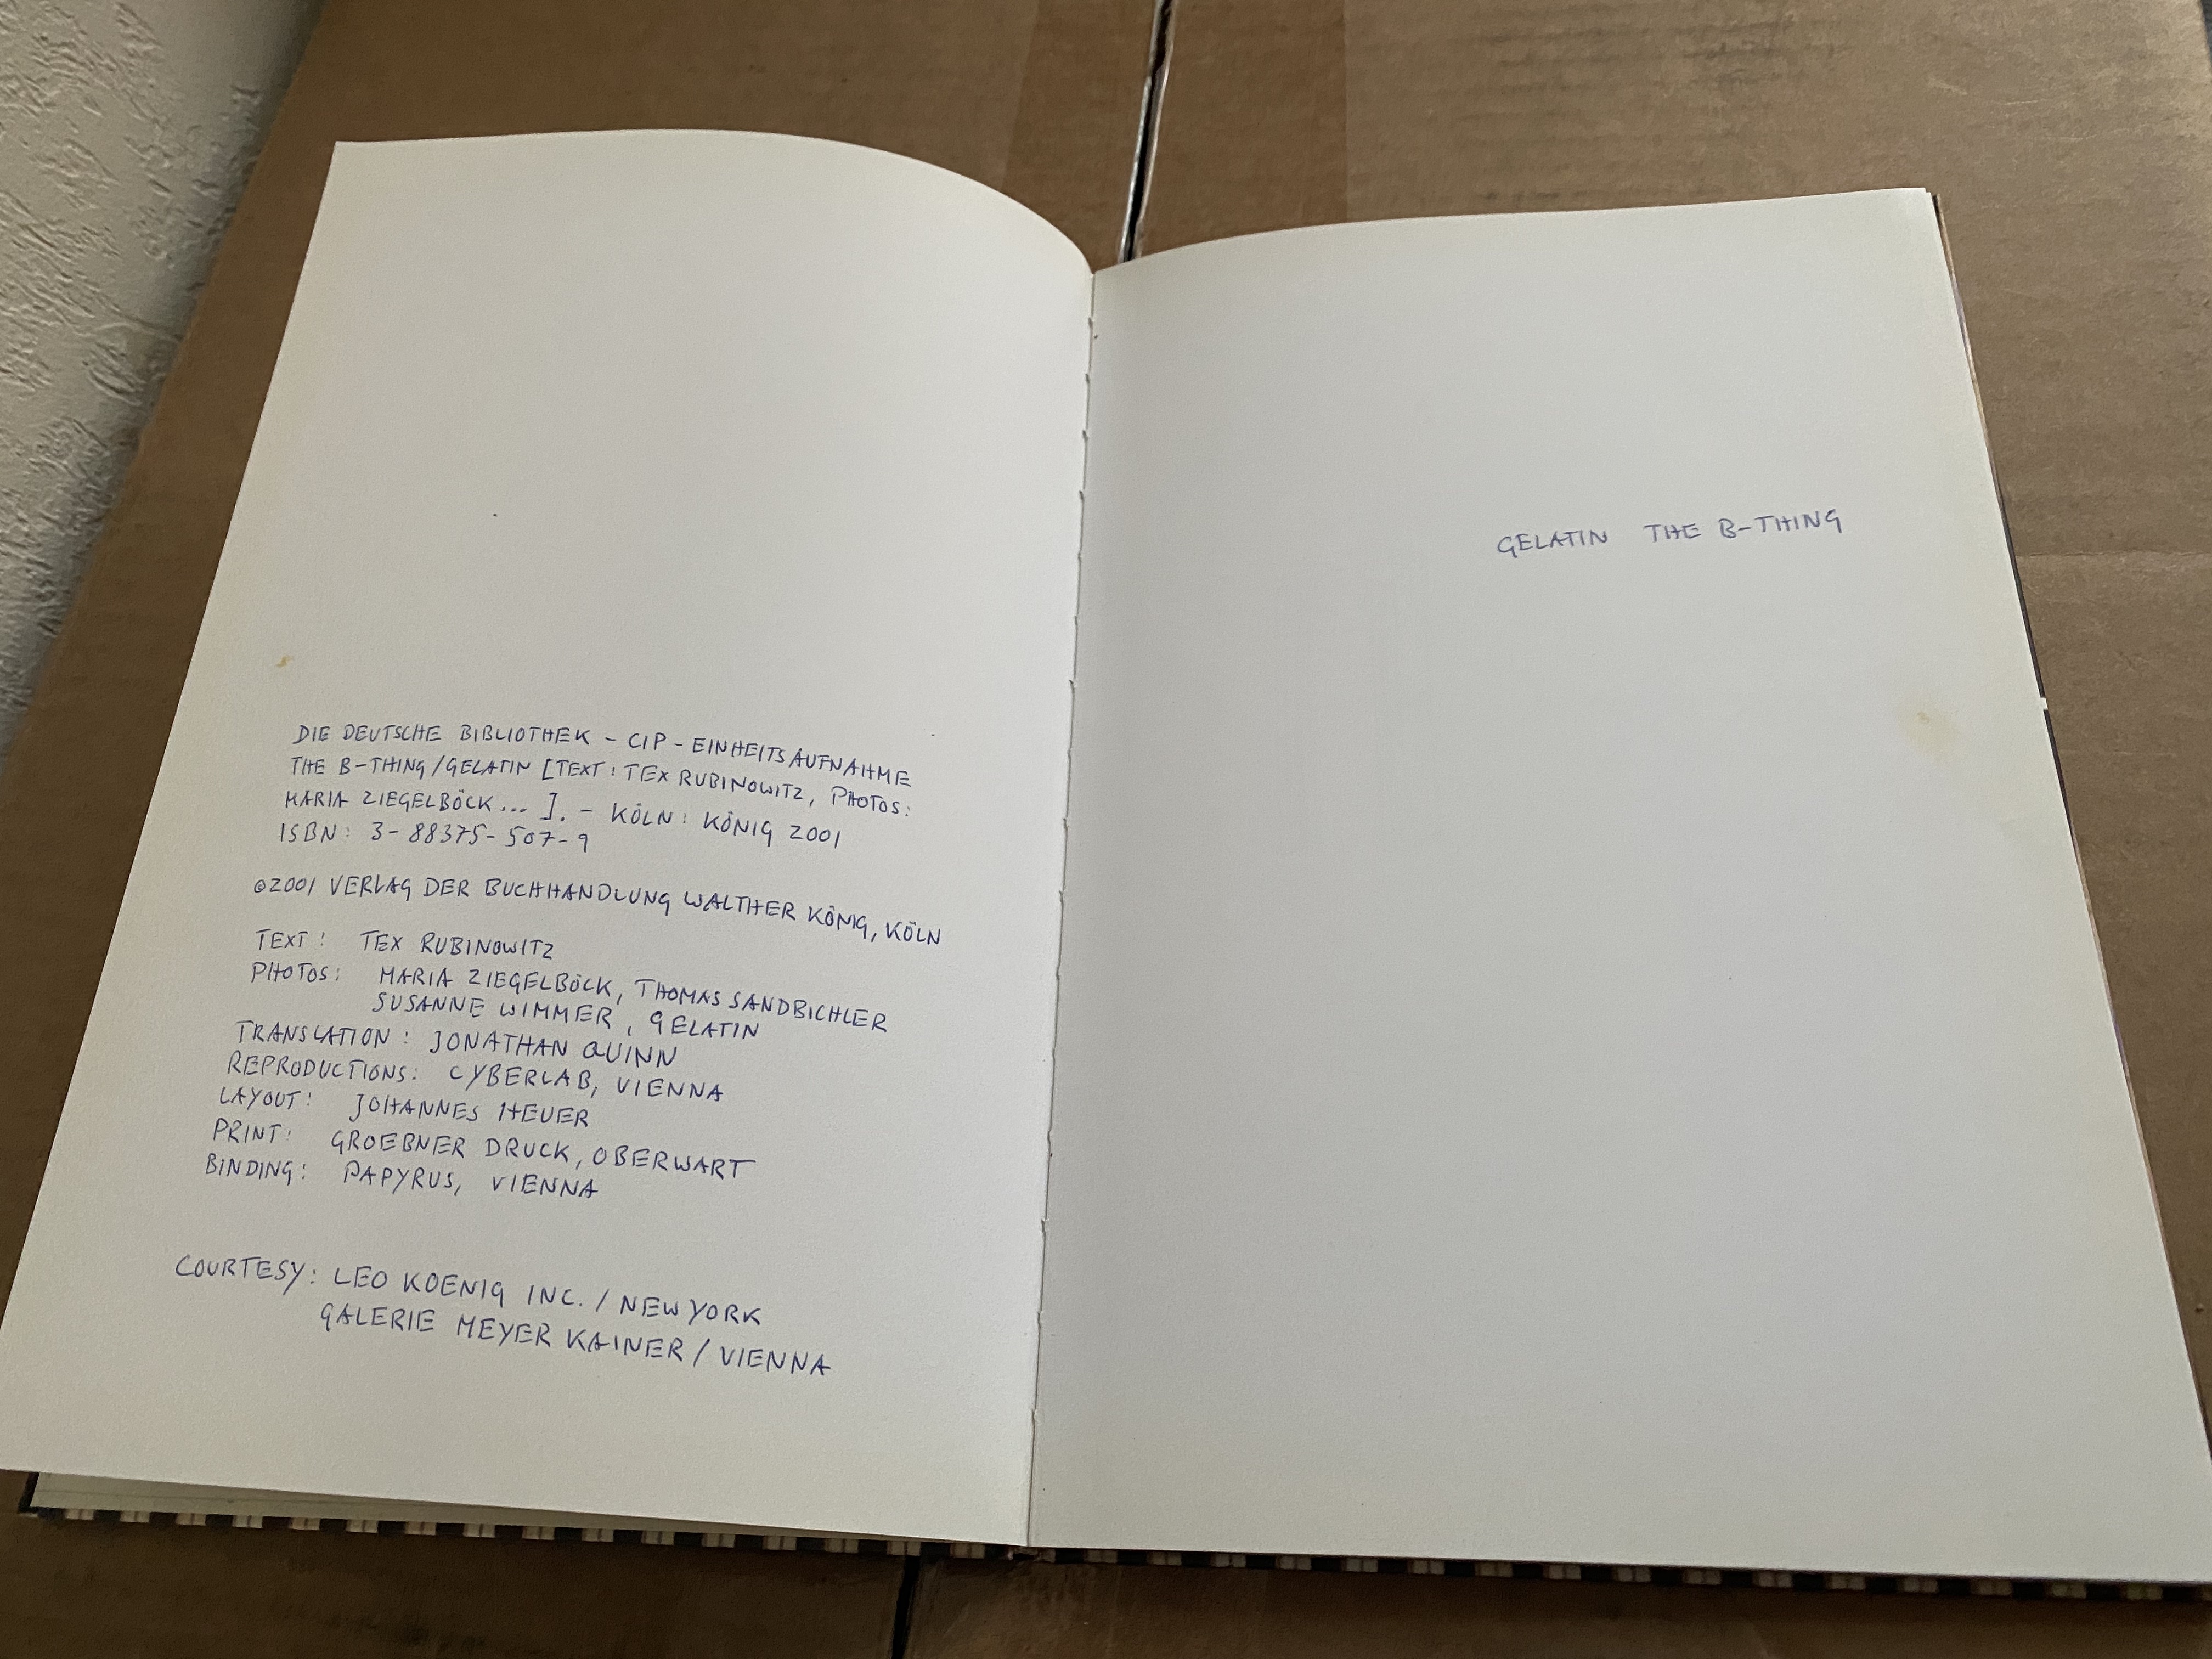 DIE DEUTSCHE BIBLIOTHEK - CIP - EINHEITSAUFNAHME
THE B-THING/GELATIN [TEXT: TEX RUBINOWITZ, PHOTOS:
MARIA ZIEGELBÖCK... ]. - KÖLN: KÖNIG 2001
ISBN: 3-88375-507-9
©2001 VERLAG DER BUCHHANDLUNG WALTHER KÖNIG, KÖLN
TEXT: TEX RUBINOWITZ
PHOTOS: MARIA ZIEGELBÖCK, THOMAS SANDBICHLER
SUSANNE WIMMER, GELATIN
TRANSLATION: JONATHAN QUINN
REPRODUCTIONS: CYBERLAB, VIENNA
LAYOUT: JOHANNES HEUER
PRINT: GROEBNER DRUCK, OBERWART
BINDING: PAPYRUS, VIENNA
COURTESY: LEO KOENIG INC. / NEW YORK
GALERIE MEYER KAINER / VIENNA
GELATIN THE B-THING